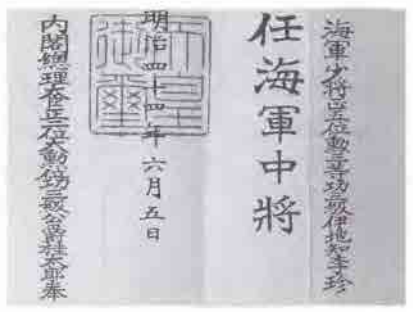 海軍少將正五位勲三等功級伊地知季珍
任海軍中將
天皇御璽
明治四十四年六月五日
内閣總理大臣正二位大勲位功三級公爵桂太郎奉